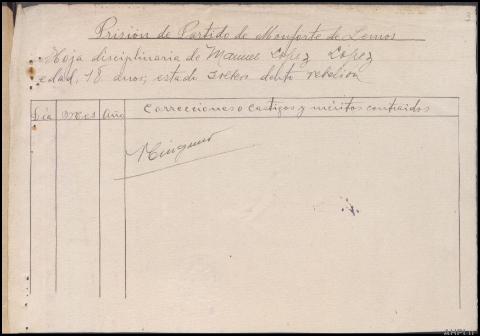 3
Prisión de Partido de Monforte de Lemos
Hoja disciplinaria de Manuel Lopez Lopez
edad, 18 anos, estado soltero delito rebelion
Dia Mes Año Correcciones o castigos y méritos contraidos
Ninguno